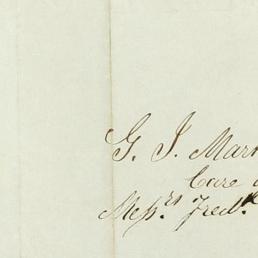 G. J. Marr
Care o
Messrs Fredk